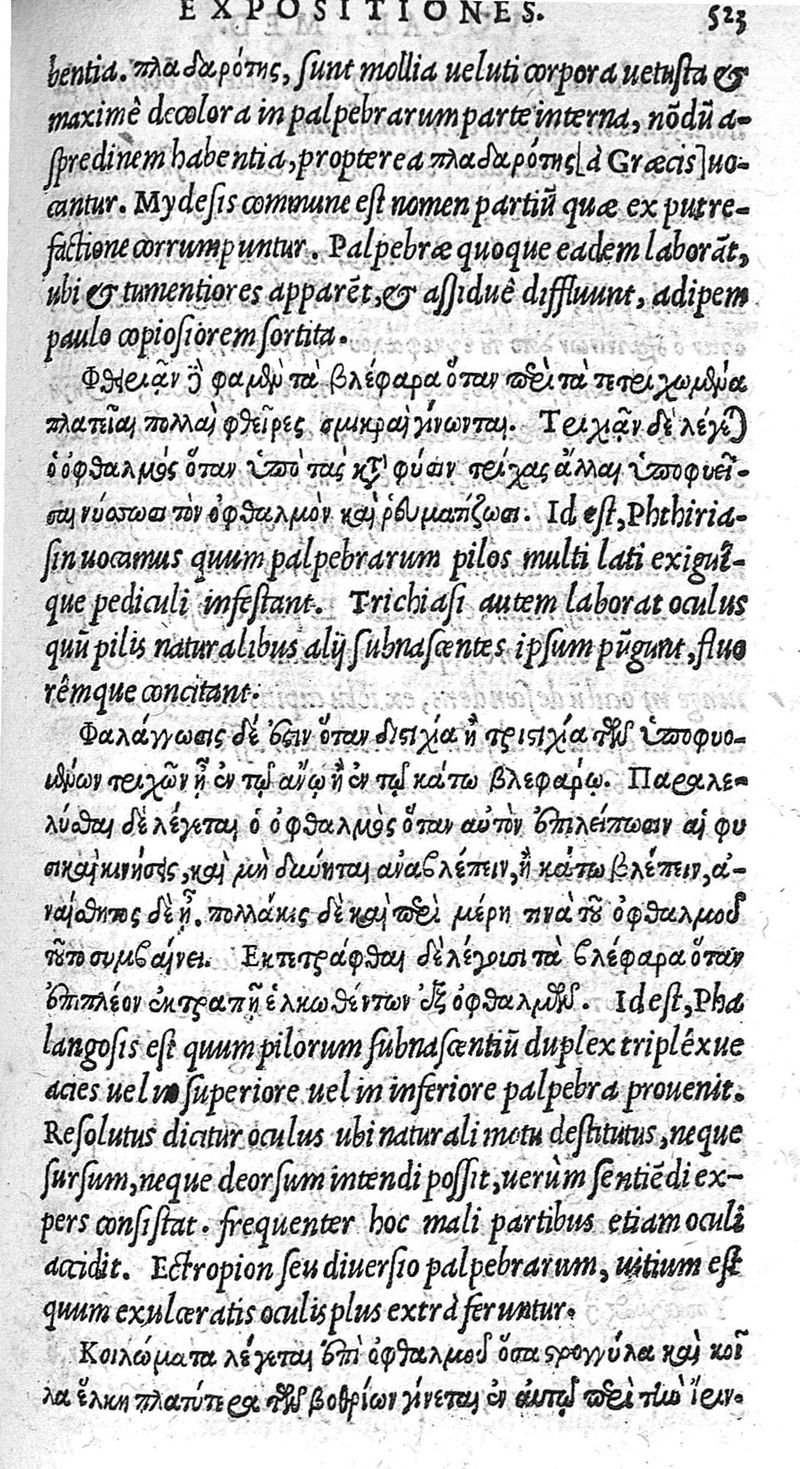 EXPOSITIONES. 523
bentia. πλαδαρότης, sunt mollia ueluti corpora uetusta &
maximê decolora in palpebrarum parte interna, nōdū a-
spredinem habentia, propterea πλαδαρότης [à Græcis] uo-
cantur. Mydesis commune est nomen partiū quæ ex putre-
factione corrumpuntur. Palpebræ quoque eadem laborāt,
ubi & tumentiores apparēt, & assiduê diffluunt, adipem
paulo copiosiorem sortita.
Φθειριᾶν ἢ φαμὲν τὰ βλέφαρα ὅταν περὶ τὰ τετριχωμένα
πλατεῖαι πολλαὶ φθεῖρες σμικραὶ γίνωνται. Τριχιᾶν δὲ λέγεται
ὁ ὀφθαλμὸς ὅταν ὑπὸ τὰς κατὰ φύσιν τρίχας ἄλλαι ὑποφυεῖ-
σαι νύσσωσι τὸν ὀφθαλμὸν καὶ ῥευματίζωσι. Id est, Phthiria-
sin uocamus quum palpebrarum pilos multi lati exiguī-
que pediculi infestant. Trichiasi autem laborat oculus
quū pilis naturalibus alij subnascentes ipsum pūgunt, fluo
rêmque concitant.
Φαλάγγωσις δέ ἐστιν ὅταν διστιχία ἢ τριστιχία τῶν ὑποφυο-
μένων τριχῶν ᾖ ἐν τῷ ἄνω ἢ ἐν τῷ κάτω βλεφάρῳ. Παραλε-
λύσθαι δὲ λέγεται ὁ ὀφθαλμὸς ὅταν αὐτὸν ἐπιλείπωσιν αἱ φυ
σικαὶ κινήσεις, καὶ μὴ δύνηται ἀναβλέπειν, ἢ κάτω βλέπειν, ἀ-
ναίσθητος δὲ ᾖ. πολλάκις δὲ καὶ περὶ μέρη τινὰ τοῦ ὀφθαλμοῦ
τοῦτο συμβαίνει. Εκτετράφθαι δὲ λέγουσι τὰ βλέφαρα ὅταν
ἐπιπλέον ἐκτραπῇ ἑλκωθέντων ἐξ ὀφθαλμῶν. Id est, Pha
langosis est quum pilorum subnascentiū duplex tripléxue
acies uel in superiore uel in inferiore palpebra prouenit.
Resolutus dicitur oculus ubi naturali motu destitutus, neque
sursum, neque deorsum intendi possit, uerùm sentiēdi ex-
pers consistat. frequenter hoc mali partibus etiam oculi
accidit. Ectropion seu diuersio palpebrarum, uitium est
quum exulceratis oculis plus extrà feruntur.
Κοιλώματα λέγεται ἐπὶ ὀφθαλμοῦ ὅσα στρογγύλα καὶ κοῖ
λα ἕλκη πλατύτερα τῶν βοθρίων γίνεται ἐν αὐτῷ περὶ τὴν ἴριν.